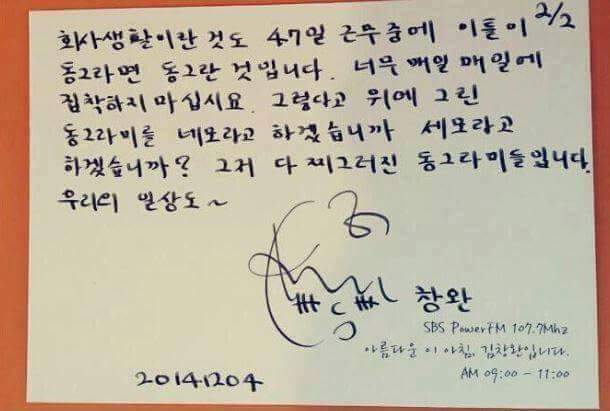 2/2
회사생활이란 것도 47일 근무중에 이틀이
동그라면 동그란 것입니다. 너무 매일 매일에
집착하지 마십시요. 그렇다고 위에 그린
동그라미를 네모라고 하겠습니까 세모라고
하겠습니까? 그저 다 찌그러진 동그라미들입니다.
우리의 일상도~
창완
SBS PowerFM 107.7Mhz
아름다운 이 아침, 김창완입니다.
AM 09:00 - 11:00
20141204